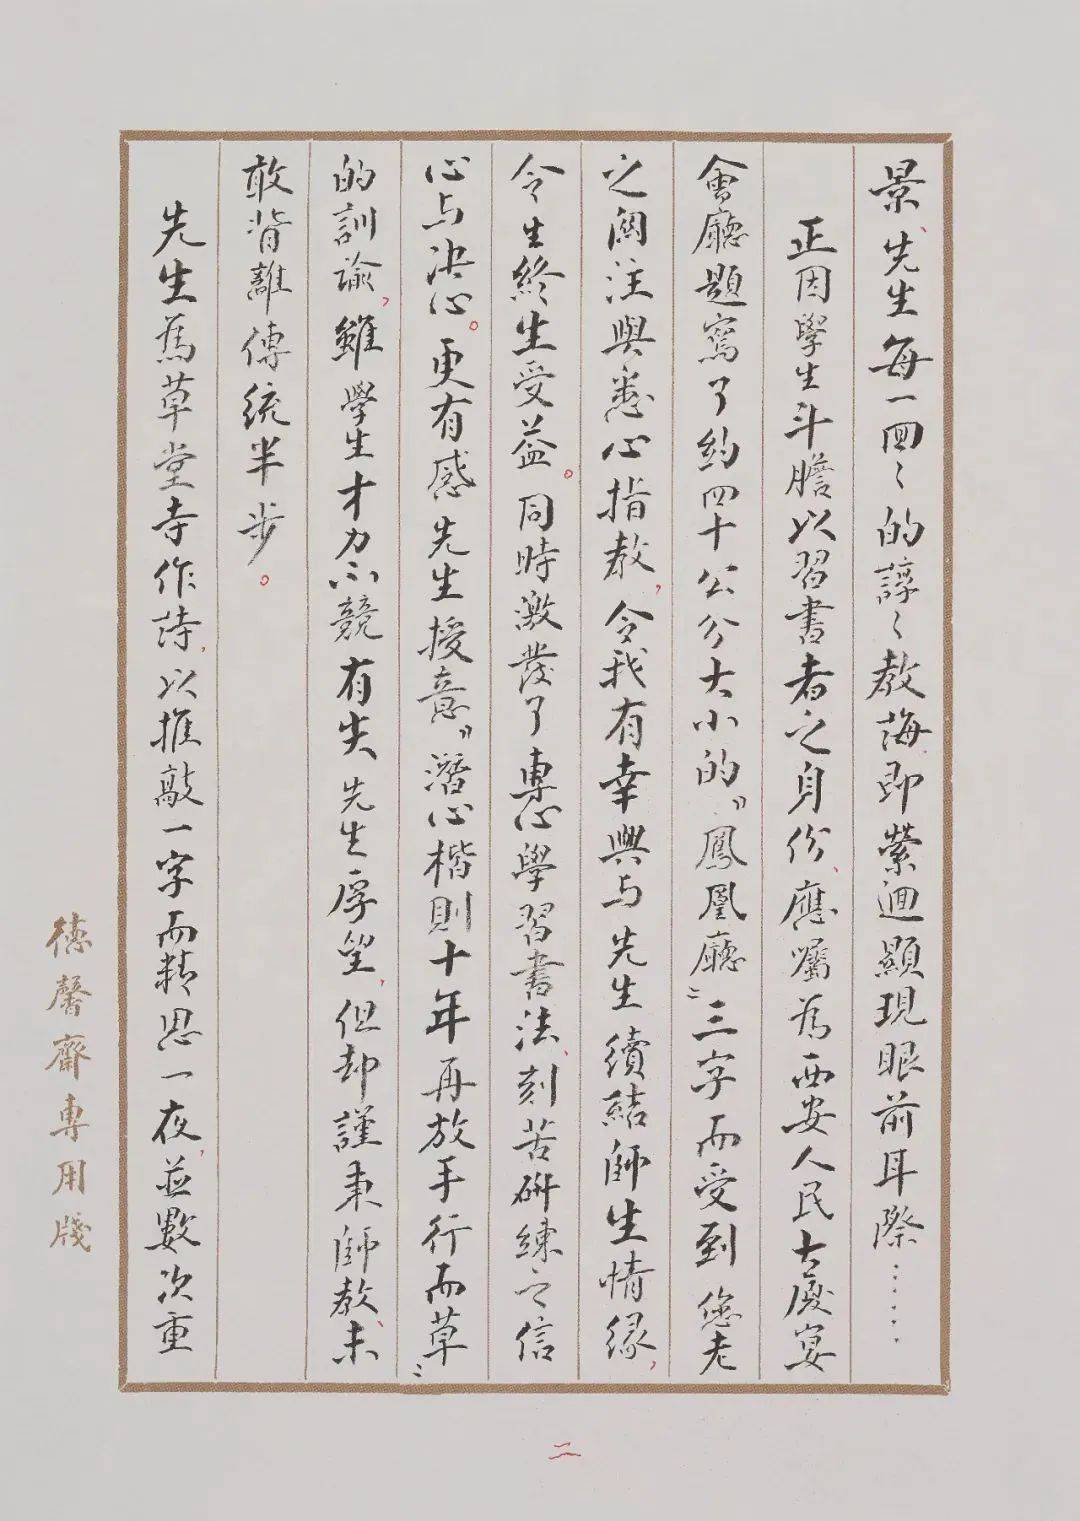 景、先生每一回〻的諄〻教誨，即縈迴顯現眼前耳際……
正因學生斗膽以習書者之身份、應囑为西安人民大廈宴
會廳題寫了約四十公分大小的“鳳凰廳”三字而受到 您老
之関注與悉心指教，令我有幸興与先生續結師生情缘，
令生終生受益。同時激發了專心學習書法、刻苦研練之信
心与决心。更有感先生授意“潛心楷則十年再放手行而草”
的訓諭，雖學生才力不競有失先生厚望，但却謹秉師教、未
敢背離傳統半步。
先生為草堂寺作詩，以推敲一字而精思一夜，並數次重
德馨齋專用牋
二